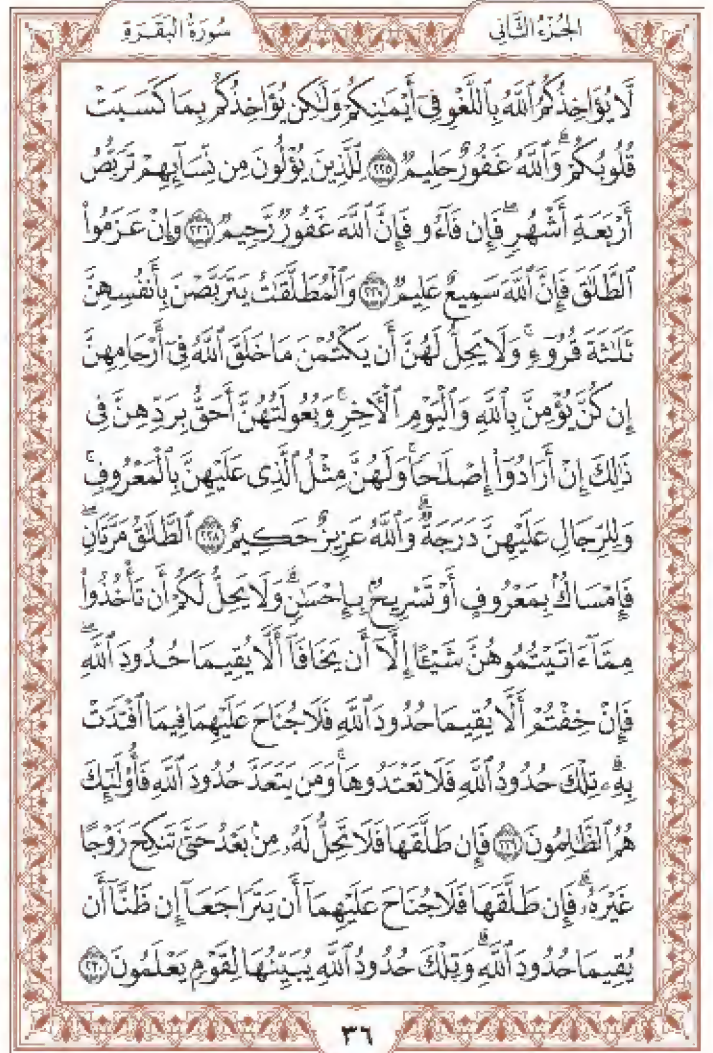 الجُزْءُ الثَّانِي
سُورَةُ الْبَقَرَةِ
لَّا يُؤَاخِذُكُمُ ٱللَّهُ بِٱللَّغْوِ فِىٓ أَيْمَٰنِكُمْ وَلَٰكِن يُؤَاخِذُكُم بِمَا كَسَبَتْ
قُلُوبُكُمْ ۗ وَٱللَّهُ غَفُورٌ حَلِيمٌ ٢٢٥ لِّلَّذِينَ يُؤْلُونَ مِن نِّسَآئِهِمْ تَرَبُّصُ
أَرْبَعَةِ أَشْهُرٍ ۖ فَإِن فَآءُو فَإِنَّ ٱللَّهَ غَفُورٌ رَّحِيمٌ ٢٢٦ وَإِنْ عَزَمُوا۟
ٱلطَّلَٰقَ فَإِنَّ ٱللَّهَ سَمِيعٌ عَلِيمٌ ٢٢٧ وَٱلْمُطَلَّقَٰتُ يَتَرَبَّصْنَ بِأَنفُسِهِنَّ
ثَلَٰثَةَ قُرُوٓءٍ ۚ وَلَا يَحِلُّ لَهُنَّ أَن يَكْتُمْنَ مَا خَلَقَ ٱللَّهُ فِىٓ أَرْحَامِهِنَّ
إِن كُنَّ يُؤْمِنَّ بِٱللَّهِ وَٱلْيَوْمِ ٱلْءَاخِرِ ۚ وَبُعُولَتُهُنَّ أَحَقُّ بِرَدِّهِنَّ فِى
ذَٰلِكَ إِنْ أَرَادُوٓا۟ إِصْلَٰحًا ۚ وَلَهُنَّ مِثْلُ ٱلَّذِى عَلَيْهِنَّ بِٱلْمَعْرُوفِ ۚ
وَلِلرِّجَالِ عَلَيْهِنَّ دَرَجَةٌ ۗ وَٱللَّهُ عَزِيزٌ حَكِيمٌ ٢٢٨ ٱلطَّلَٰقُ مَرَّتَانِ ۖ
فَإِمْسَاكٌۢ بِمَعْرُوفٍ أَوْ تَسْرِيحٌۢ بِإِحْسَٰنٍ ۗ وَلَا يَحِلُّ لَكُمْ أَن تَأْخُذُوا۟
مِمَّآ ءَاتَيْتُمُوهُنَّ شَيْـًٔا إِلَّآ أَن يَخَافَآ أَلَّا يُقِيمَا حُدُودَ ٱللَّهِ ۖ
فَإِنْ خِفْتُمْ أَلَّا يُقِيمَا حُدُودَ ٱللَّهِ فَلَا جُنَاحَ عَلَيْهِمَا فِيمَا ٱفْتَدَتْ
بِهِۦ ۗ تِلْكَ حُدُودُ ٱللَّهِ فَلَا تَعْتَدُوهَا ۚ وَمَن يَتَعَدَّ حُدُودَ ٱللَّهِ فَأُو۟لَٰٓئِكَ
هُمُ ٱلظَّٰلِمُونَ ٢٢٩ فَإِن طَلَّقَهَا فَلَا تَحِلُّ لَهُۥ مِنۢ بَعْدُ حَتَّىٰ تَنكِحَ زَوْجًا
غَيْرَهُۥ ۗ فَإِن طَلَّقَهَا فَلَا جُنَاحَ عَلَيْهِمَآ أَن يَتَرَاجَعَآ إِن ظَنَّآ أَن
يُقِيمَا حُدُودَ ٱللَّهِ ۗ وَتِلْكَ حُدُودُ ٱللَّهِ يُبَيِّنُهَا لِقَوْمٍ يَعْلَمُونَ ٢٣٠
٣٦